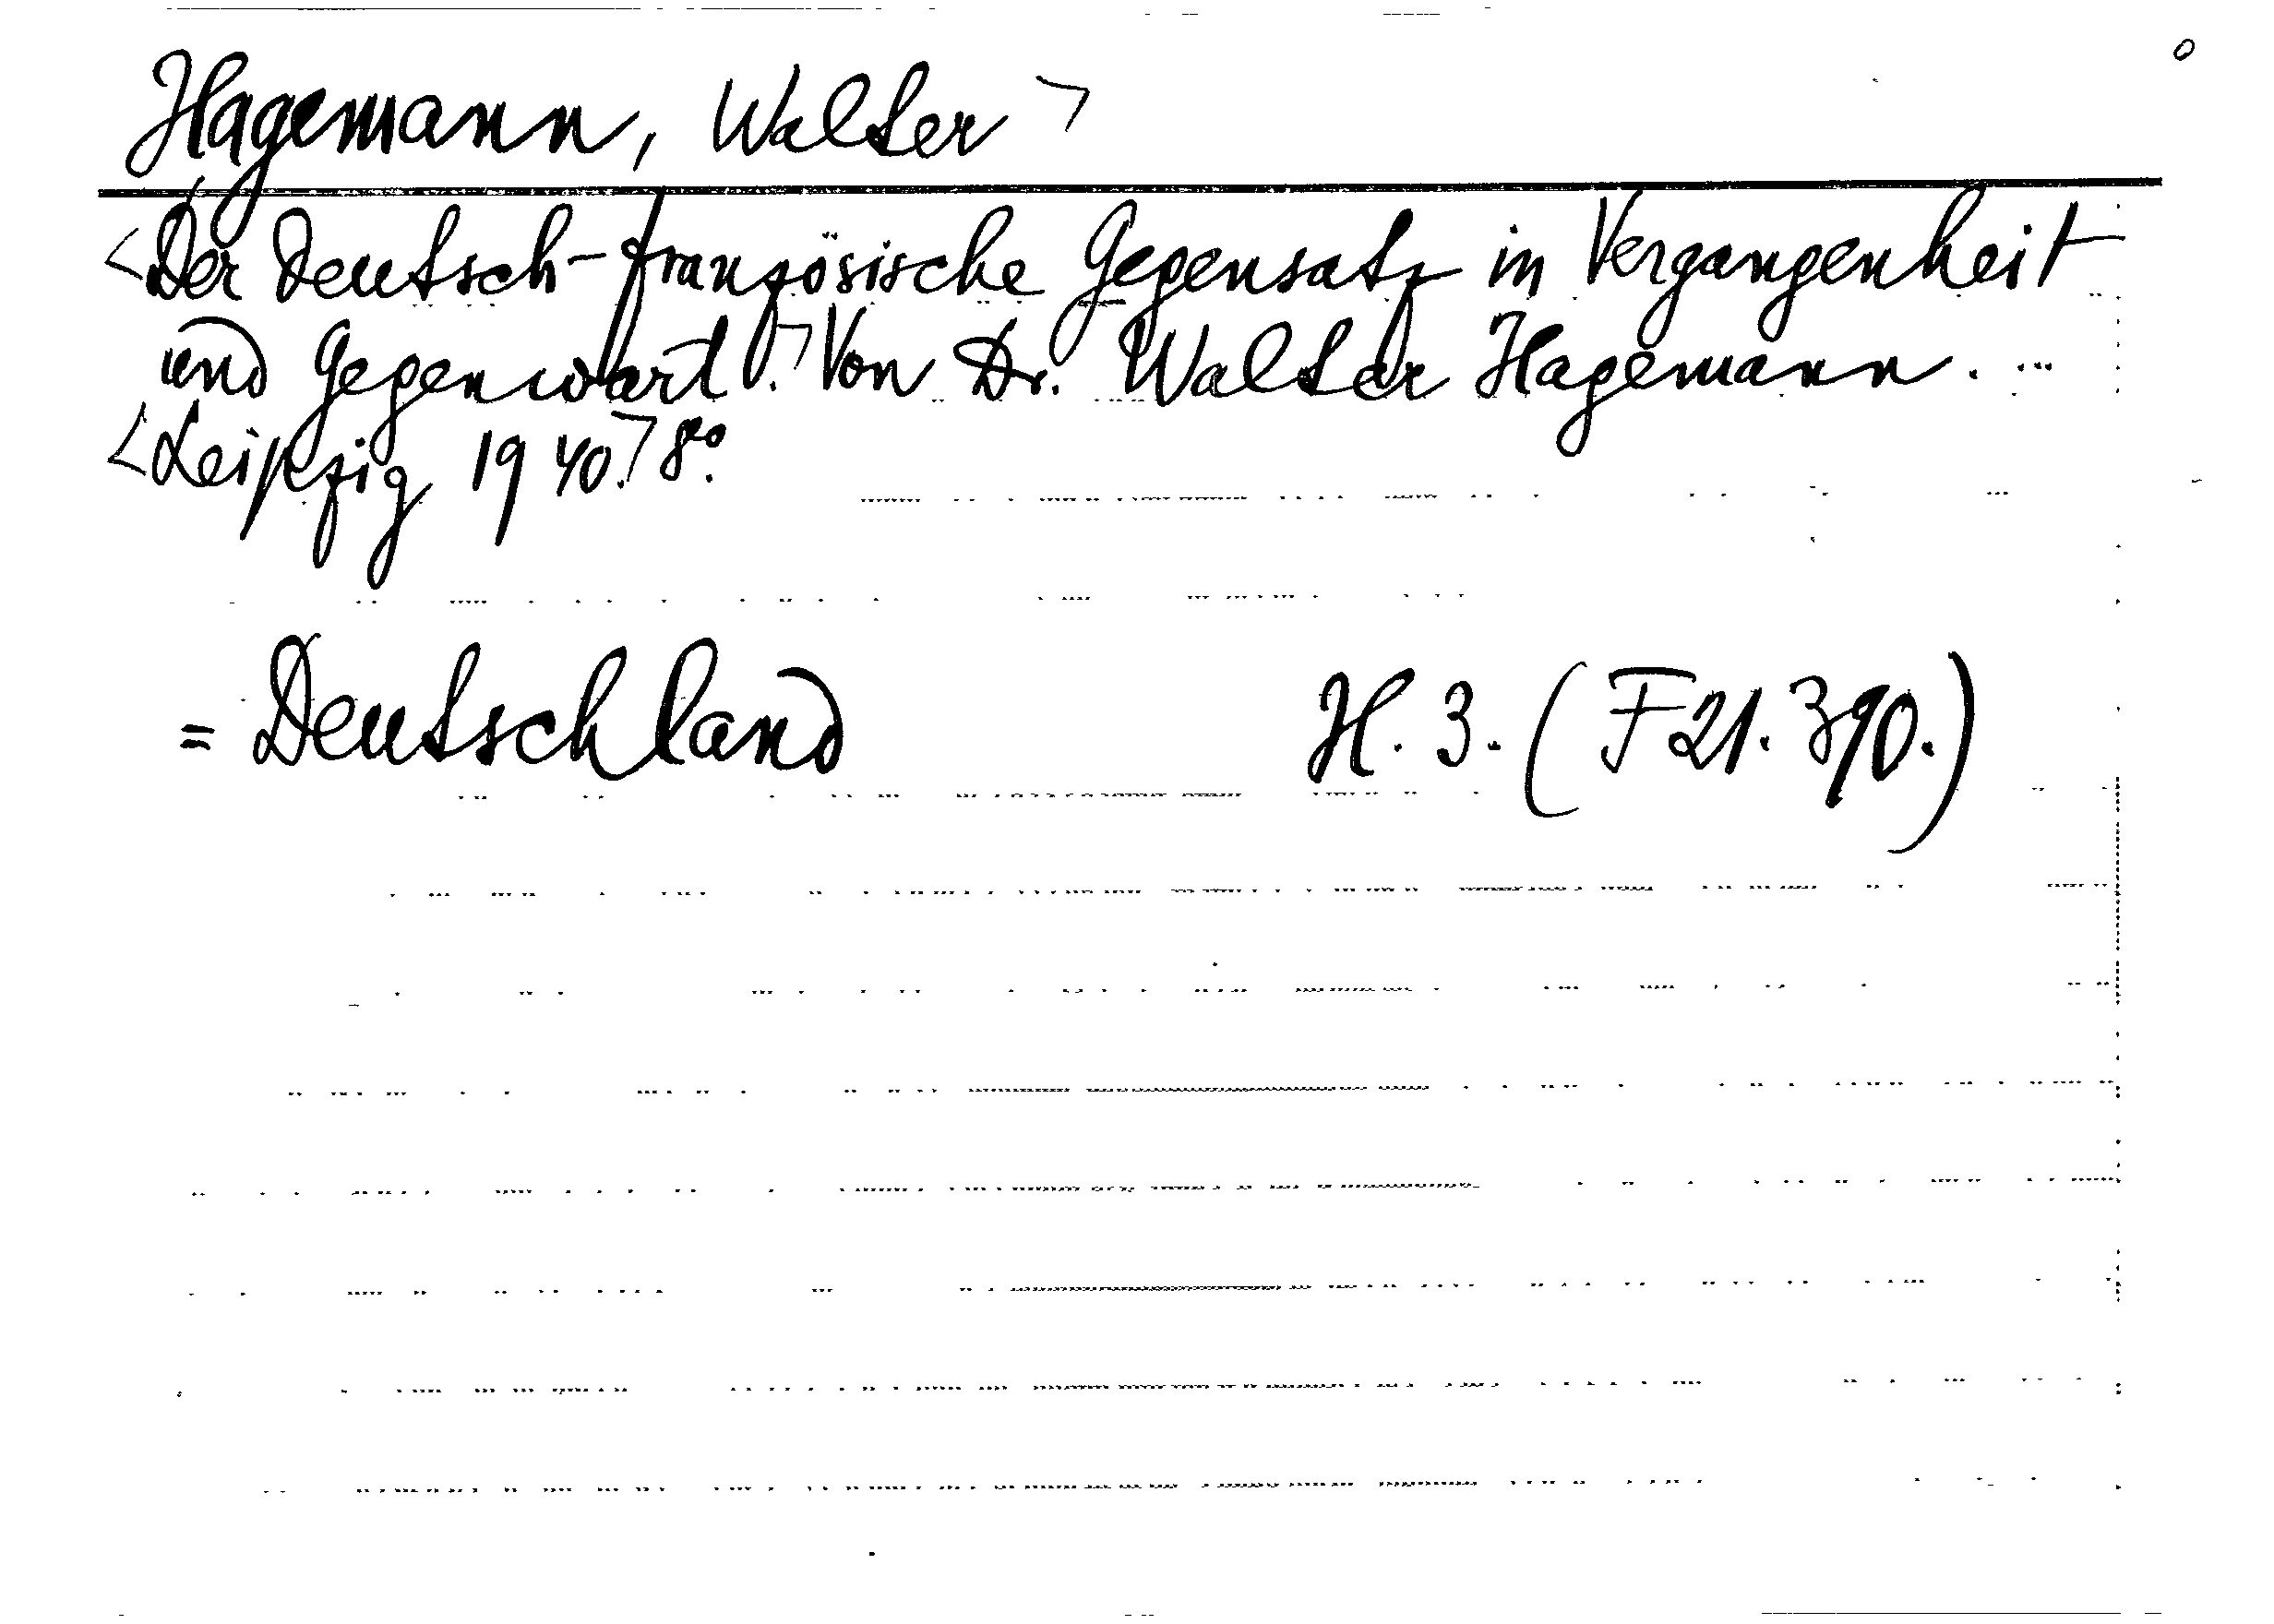 Hagemann, Walter ㄱ
<Der deutsch-französische Gegensatz in Vergangenheit
und Gegenwart.ㄱ Von Dr. Walter Hagemann. ...
<Leipzig 1940.ㄱ 8⁰.
= Deutschland H. 3. (F21.390.)